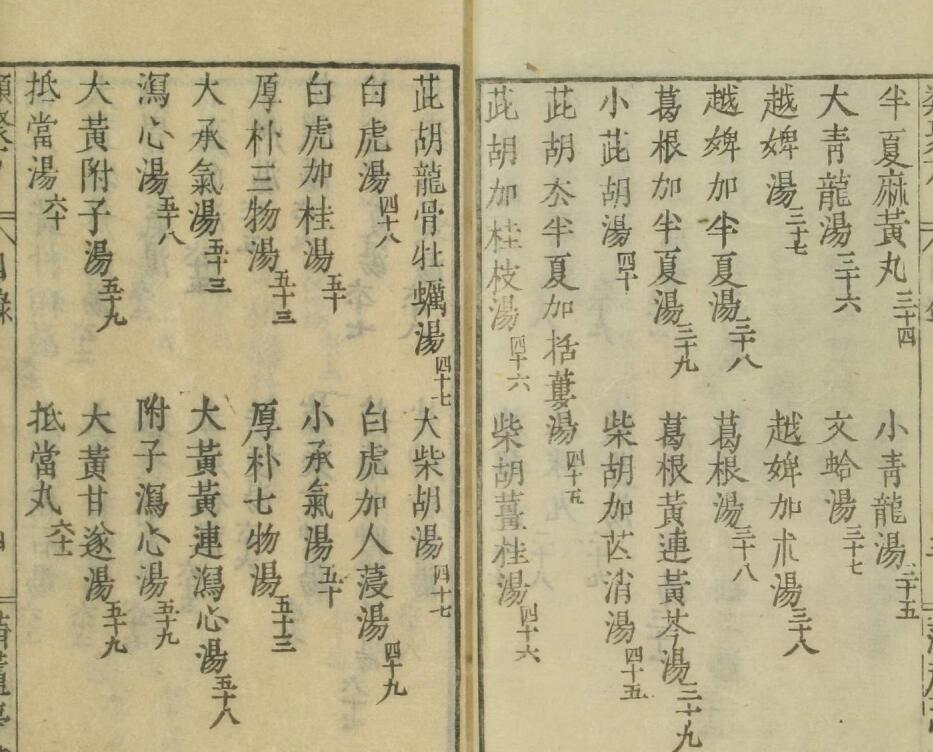 半夏麻黃丸三十四 小青龍湯三十五
大青龍湯三十六 文蛤湯三十七
越婢湯三十七 越婢加朮湯三十八
越婢加半夏湯三十八 葛根湯三十八
葛根加半夏湯三十九 葛根黃連黃芩湯三十九
小茈胡湯四十 柴胡加芒消湯四十五
茈胡去半夏加栝蔞湯四十五
茈胡加桂枝湯四十六 柴胡薑桂湯四十六
茈胡龍骨牡蠣湯四十七 大柴胡湯四十七
白虎湯四十八 白虎加人蓡湯四十九
白虎加桂湯五十 小承氣湯五十
厚朴三物湯五十三 厚朴七物湯五十三
大承氣湯五十三 大黃黃連瀉心湯五十八
瀉心湯五十八 附子瀉心湯五十九
大黃附子湯五十九 大黃甘遂湯五十九
抵當湯六十 抵當丸
目錄